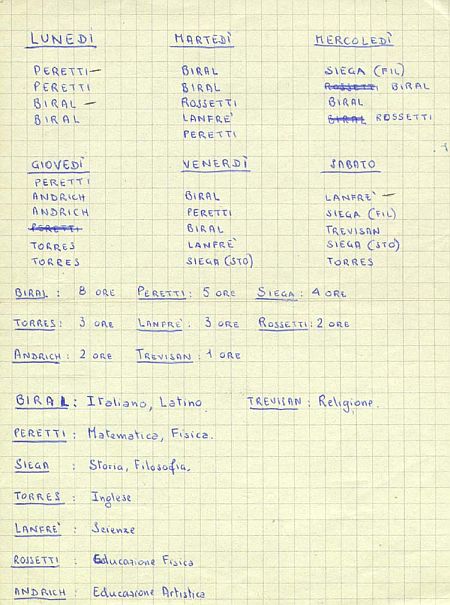 LUNEDÌ MARTEDÌ MERCOLEDÌ
PERETTI – BIRAL SIEGA (FIL)
PERETTI BIRAL ROSSETTI BIRAL
BIRAL – ROSSETTI BIRAL
BIRAL LANFRE' BIRAL ROSSETTI
PERETTI
GIOVEDÌ VENERDÌ SABATO
PERETTI
ANDRICH BIRAL LANFRE' –
ANDRICH PERETTI SIEGA (FIL)
PERETTI BIRAL TREVISAN
TORRES LANFRE' SIEGA (STO)
TORRES SIEGA (STO) TORRES
BIRAL : 8 ORE PERETTI : 5 ORE SIEGA : 4 ORE
TORRES : 3 ORE LANFRE' : 3 ORE ROSSETTI : 2 ORE
ANDRICH : 2 ORE TREVISAN : 1 ORE
BIRAL : Italiano, Latino. TREVISAN : Religione.
PERETTI : Matematica, Fisica.
SIEGA : Storia, Filosofia.
TORRES : Inglese
LANFRE' : Scienze
ROSSETTI : Educazione Fisica
ANDRICH : Educazione Artistica